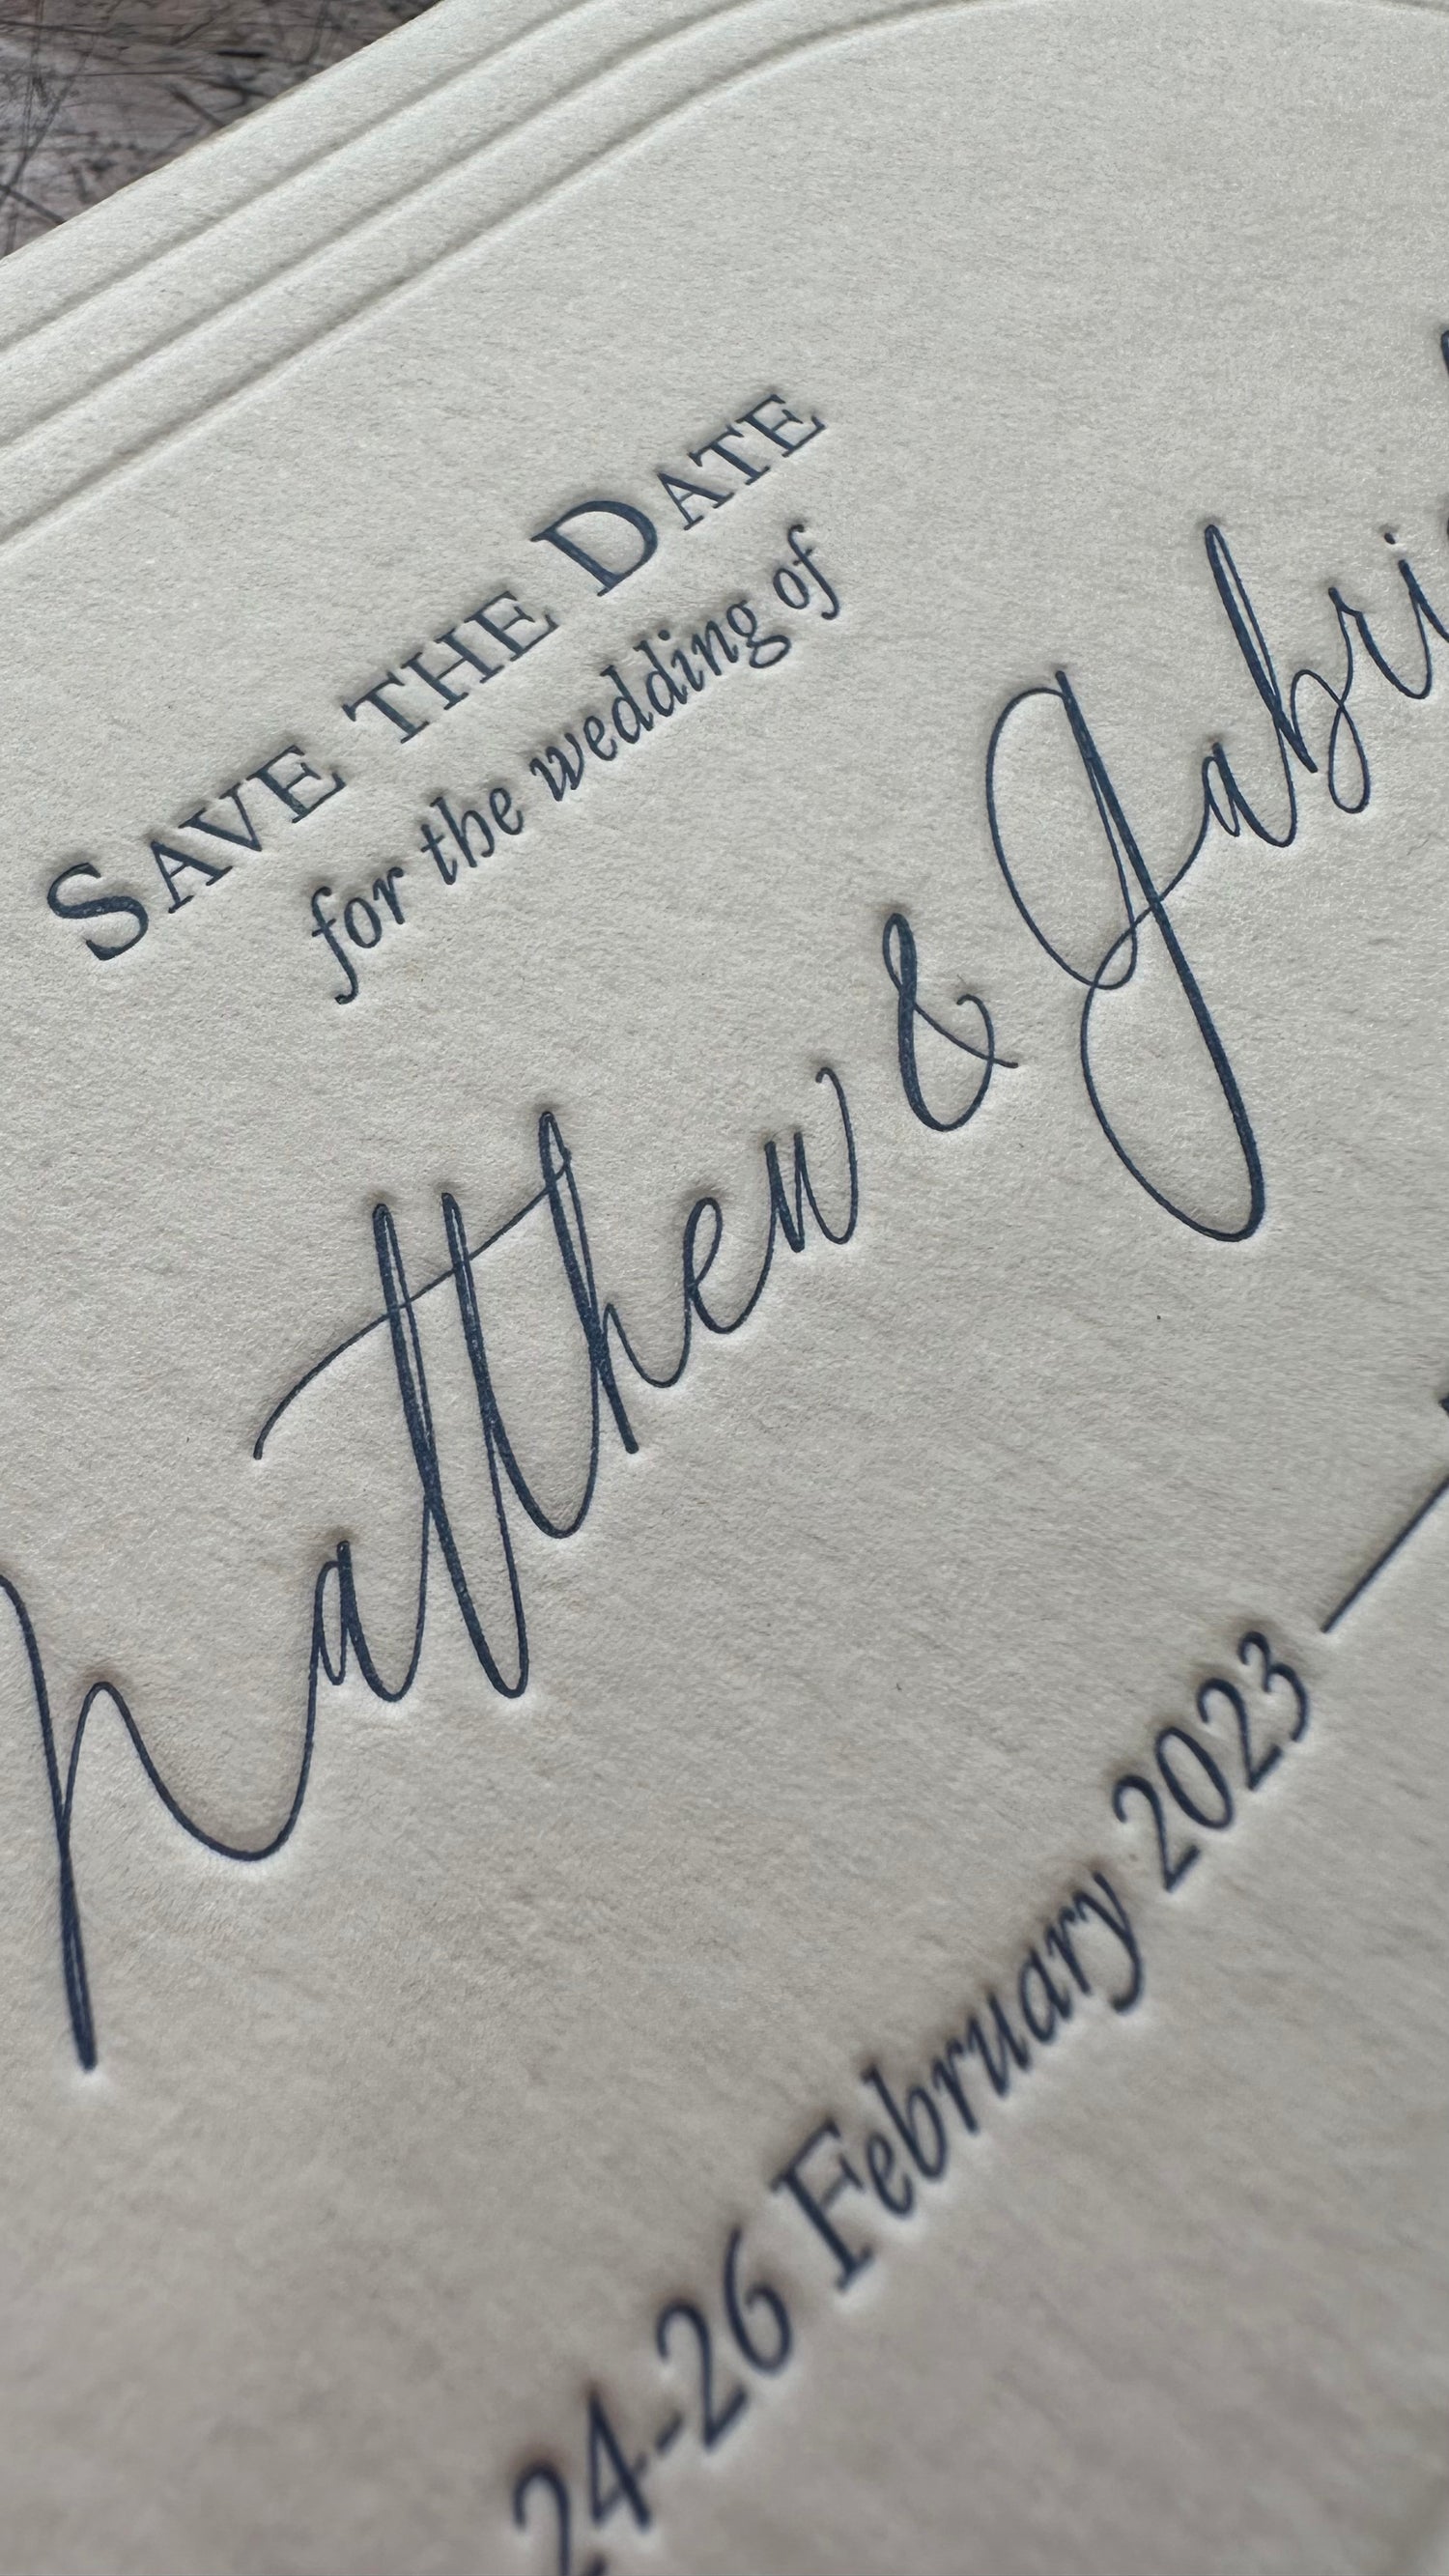 SAVE THE DATE
for the wedding of
Matthew & Gabri
24-26 February 2023 —